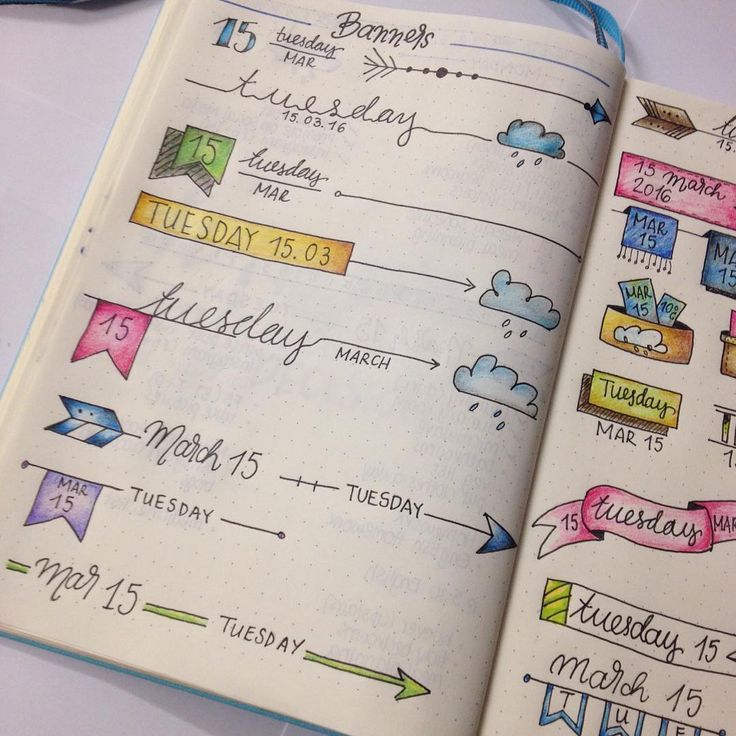 Banners
15 tuesday
MAR
tuesday
15.03.16
15 tuesday
MAR
TUESDAY 15.03
15 tuesday
MARCH
March 15 TUESDAY
MAR
15 TUESDAY
mar 15 TUESDAY
15 march
2016
MAR
15
MAR
15
MAR
15
10°C
Tuesday
MAR 15
15 tuesday MAR
tuesday 15
march 15
T U E